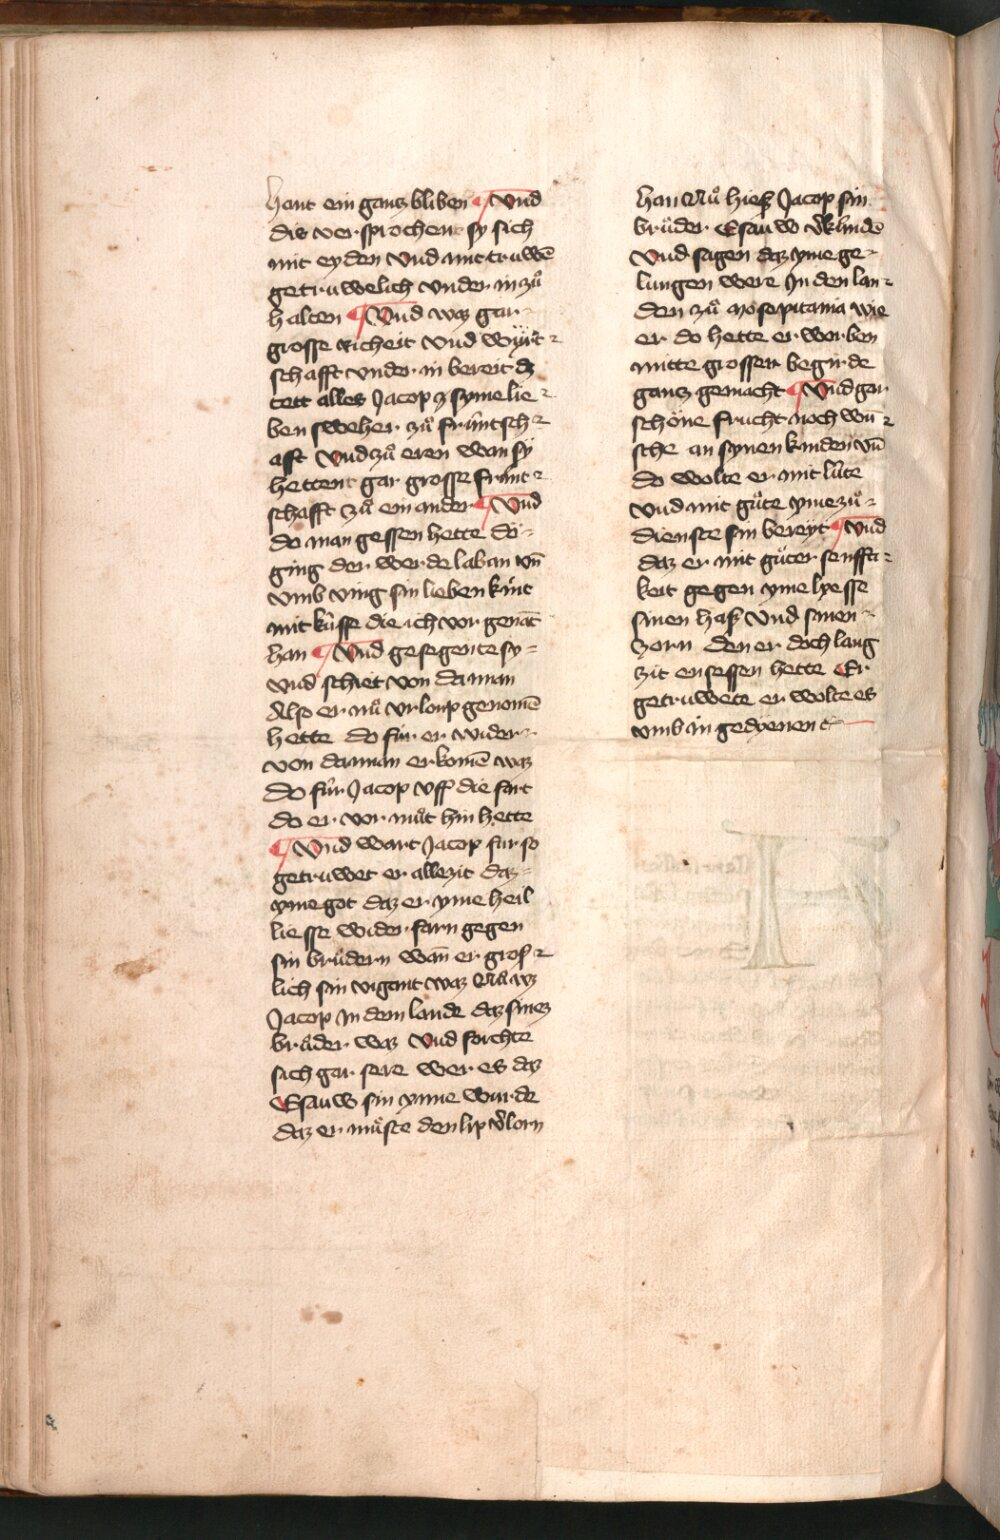 hant ein gantz bliben ¶ Vnd
die versprochent sy sich
mit eyden vnd mit truwē
getruwelich vnder in zů
halten ¶ Vnd waz gar-
grosse richeit vnd wyrt-
schafft vnder in bereit dz
tett alles Jacop syme lie-
ben sweher zů frůntsch-
afft vnd zů eren wan sy
hettent gar grosse frůnt-
schafft zů ein ander ¶ Vnd
do man gessen hette do-
ging der werde laban vn̄
vmb ving sin lieben kint
mit kůsse die ich vor genāt
han ¶ Vnd gesegente sy-
vnd schiet von dannan
Also er nů vrloup genomē
hette do fůr er wider-
von dannan er komē waz
do fůr Jacop vff die fart
do er vor můt hin hette
¶ Vnd wart Jacop fur so
getruwet er allezit daz-
yme got daz er yme heil
liesse wider farn gegen
sin brůdern wan̄ er groß-
lich sin vigent waz Nů waz
Jacop in dem lande daz sinez
brůder waz Vnd forchte
sich gar sere wer es daz
Esauw sin ynne wurde
daz er můste den lip v̓lorn
han Nů hieß Jacop sin
brůder Esauw v̓kůnden
Vnd sagen daz yme ge-
lungen were In den lan-
den zů mosopitania wie
er do hette er worben
mitte grosser begirde
gantz gemacht ¶ Vnd gar
schöne frucht noch wun-
sche an synen kinden vn̄
do wolte er mit lůte
vnd mit gůte yme zů-
dienste sin bereyt ¶ Vnd
daz er mit gůter senffti-
keit gegen yme lyesse
sinen haß Vnd sinen-
zorn den er doch lang
zit ensessen hette Er
getruwete er wolte es
vmb in gedyenen